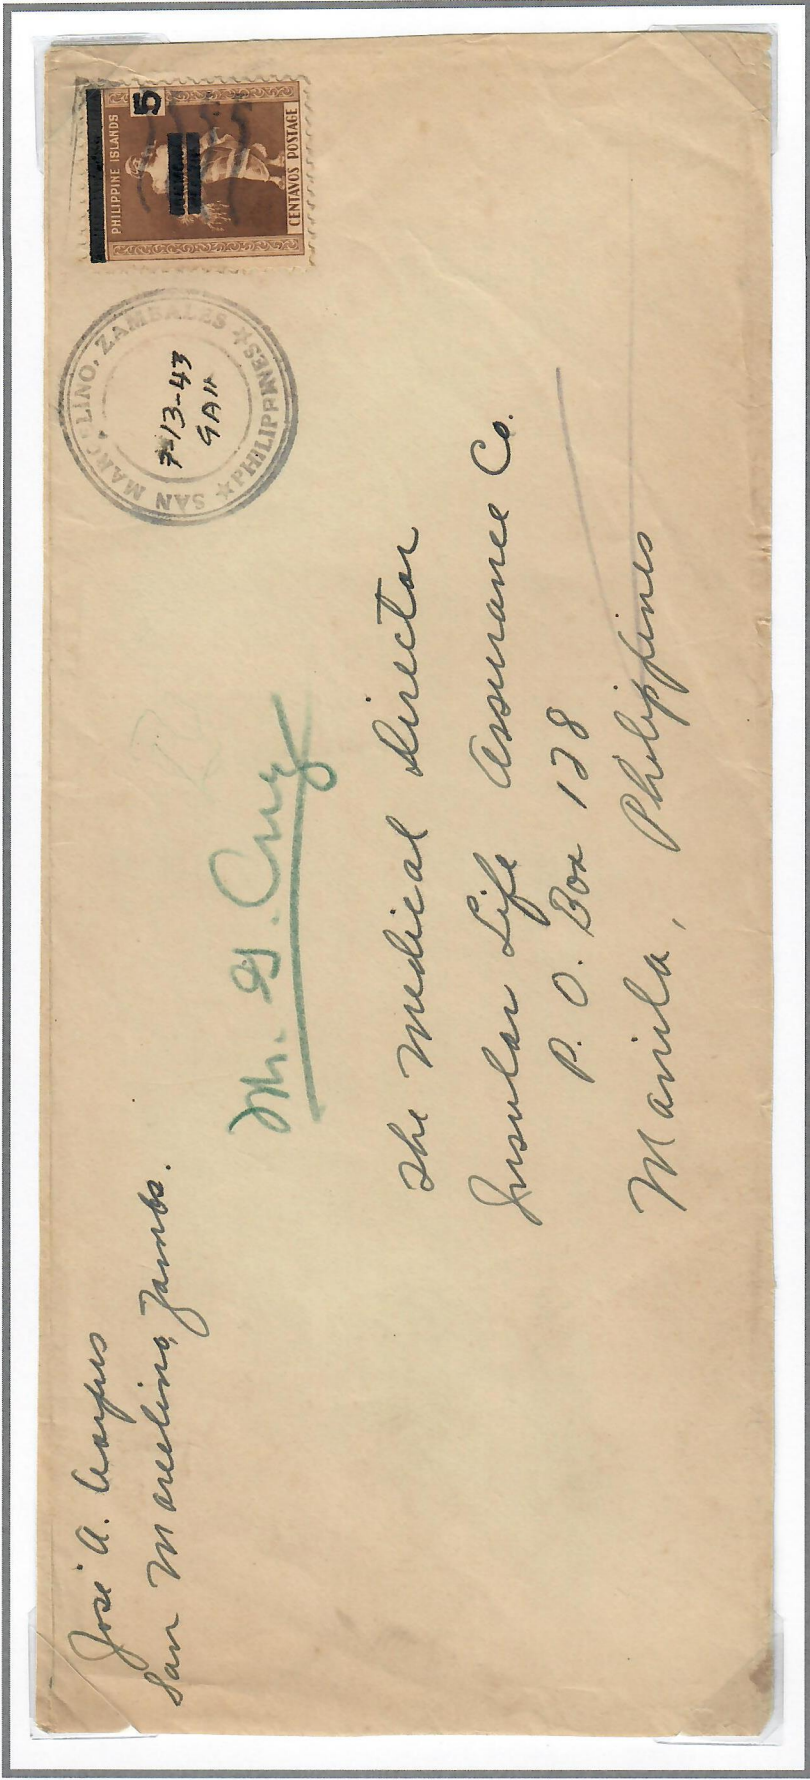 Jose A. Corpus
San Marcelino, Zambs.
PHILIPPINE ISLANDS
5
CENTAVOS POSTAGE
SAN MARCELINO, ZAMBALES
PHILIPPINES
7-13-43
9AM
Mr. G. Cruz
The Medical Director
Insular Life Assurance Co.
P. O. Box 128
Manila, Philippines